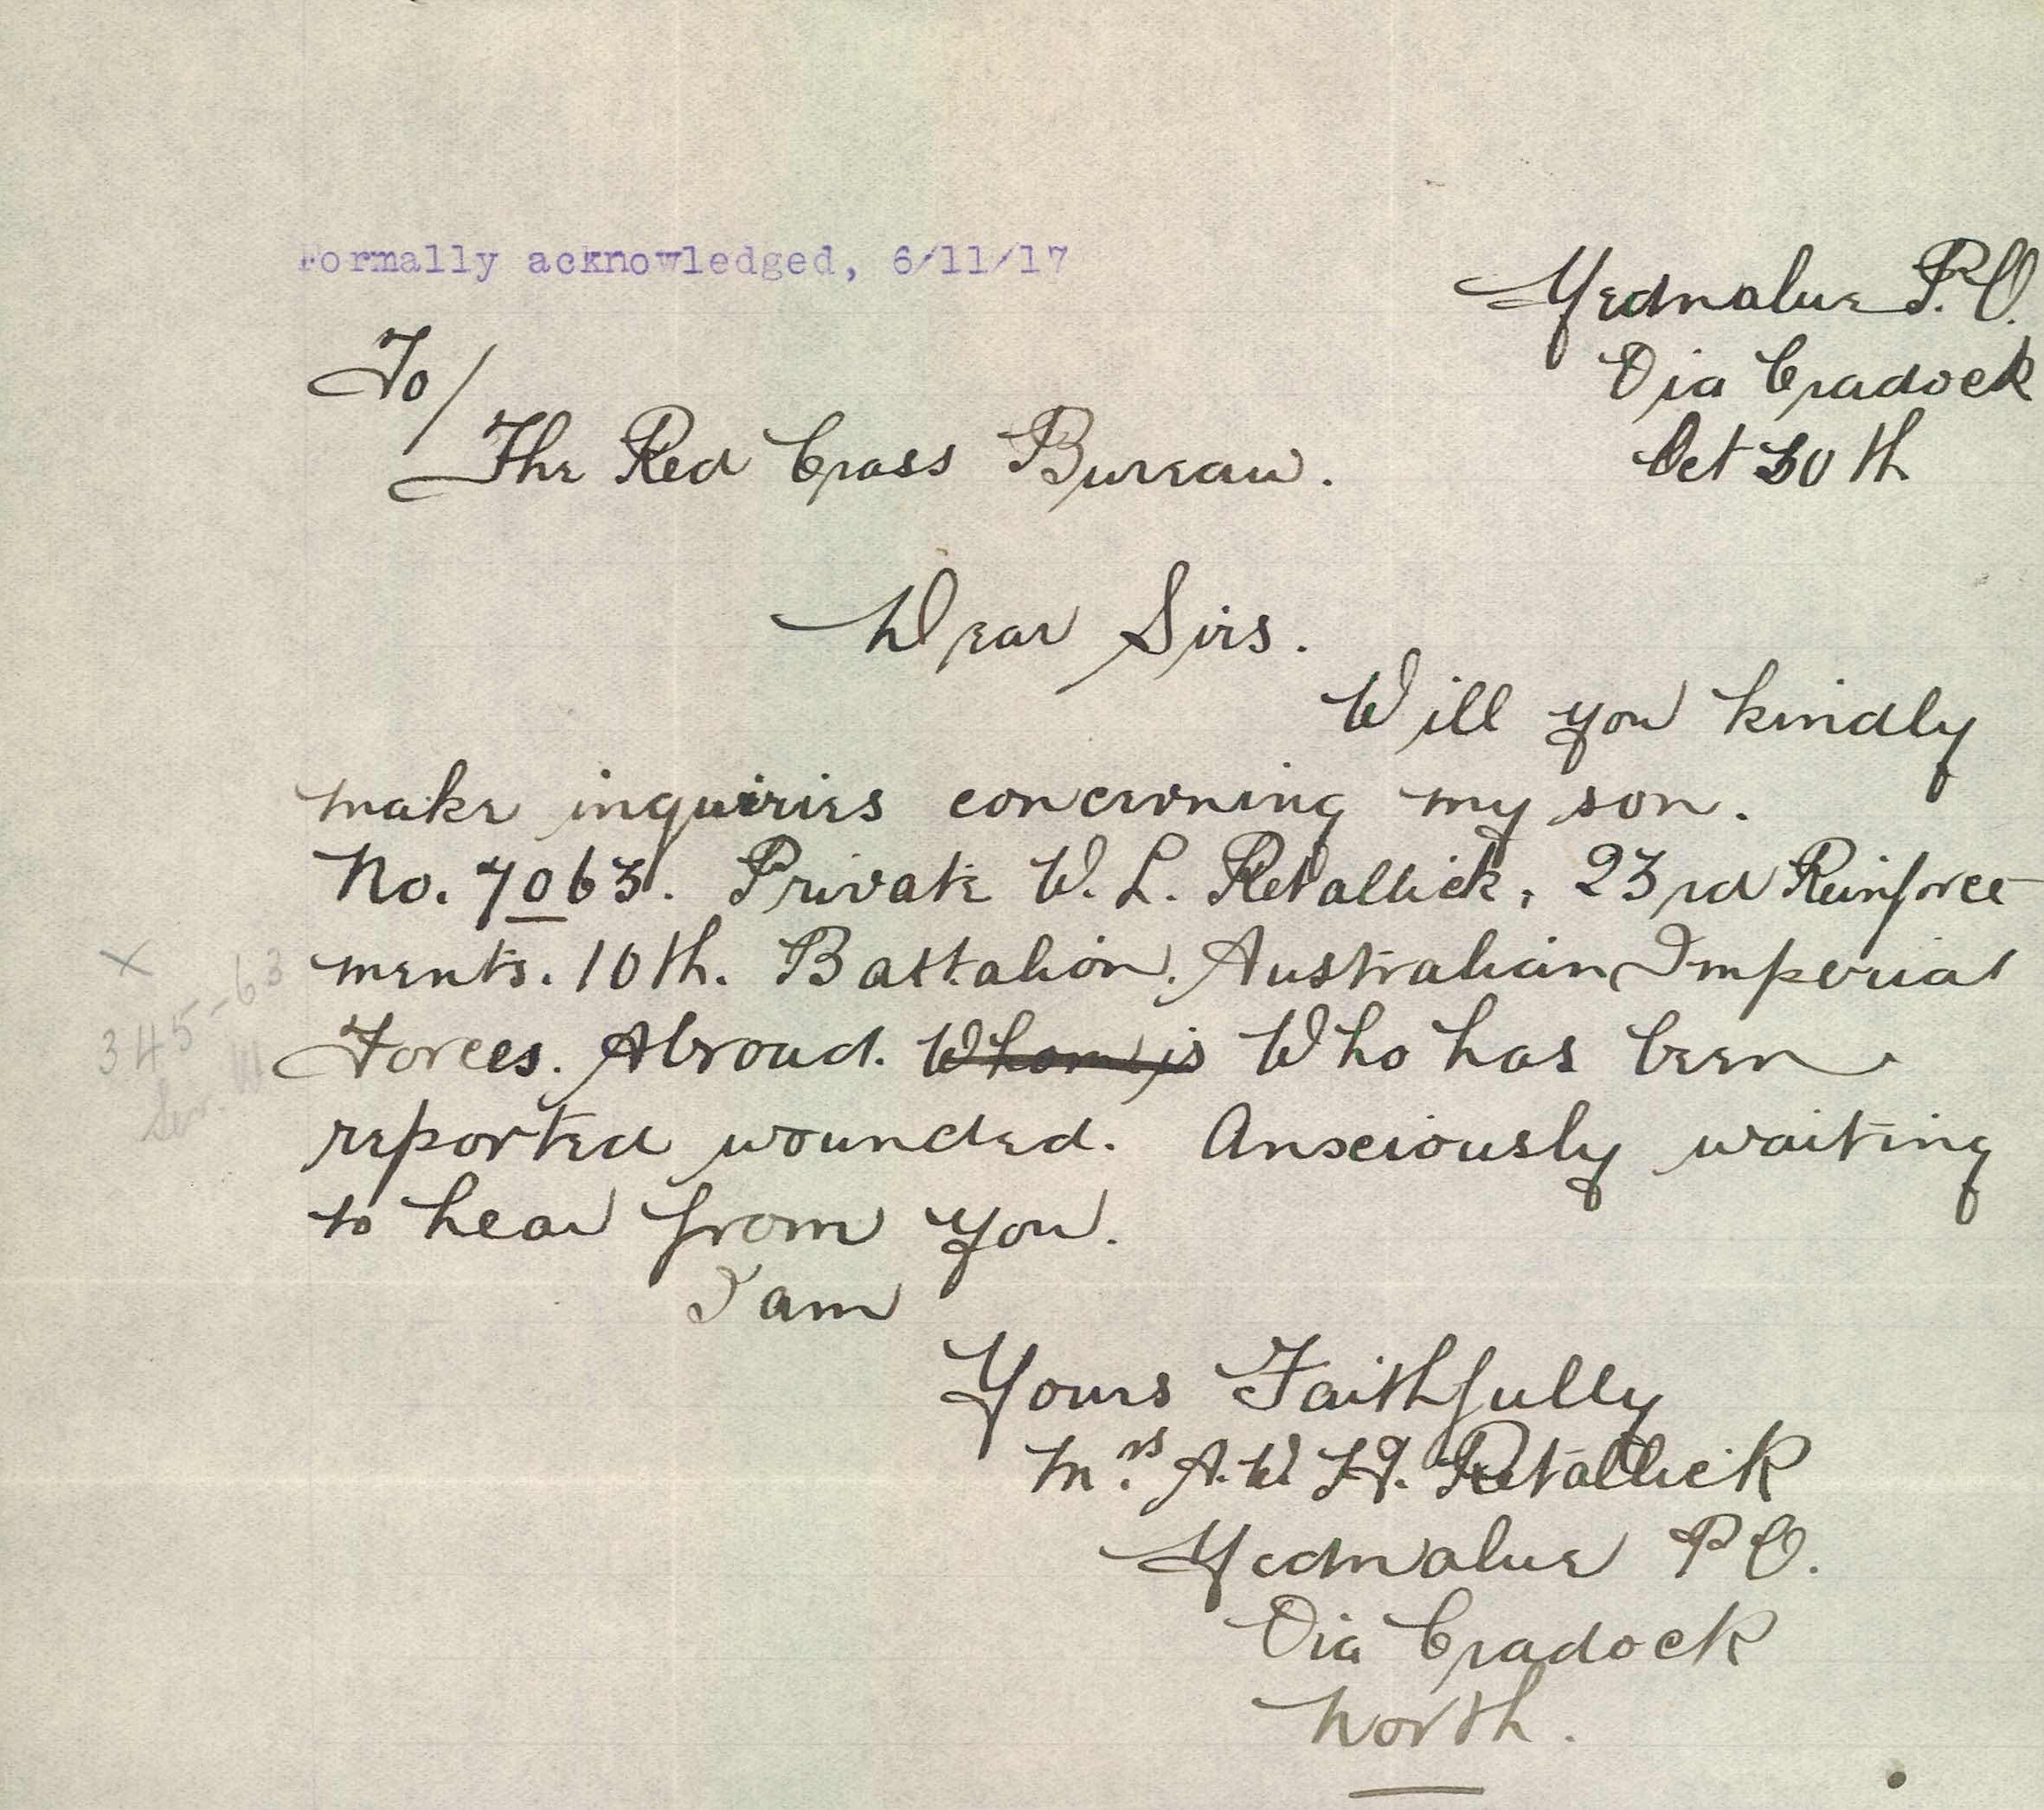 Formally acknowledged, 6/11/17
Yednalue P.O.
Via Cradock
Oct 30th
To/
The Red Cross Bureau.
Dear Sirs.
Will you kindly
make inquiries concerning my son.
No. 7063. Private W. L. Retallick, 23rd Reinforce-
ments. 10th. Battalion. Australian Imperial
Forces. Abroad. Whom is Who has been
reported wounded. Anxciously waiting
to hear from you.
I am
Yours Faithfully
Mrs. A. W. H. Retallick
Yednalue P O.
Via Cradock
North.
X
345-63
Ser. III